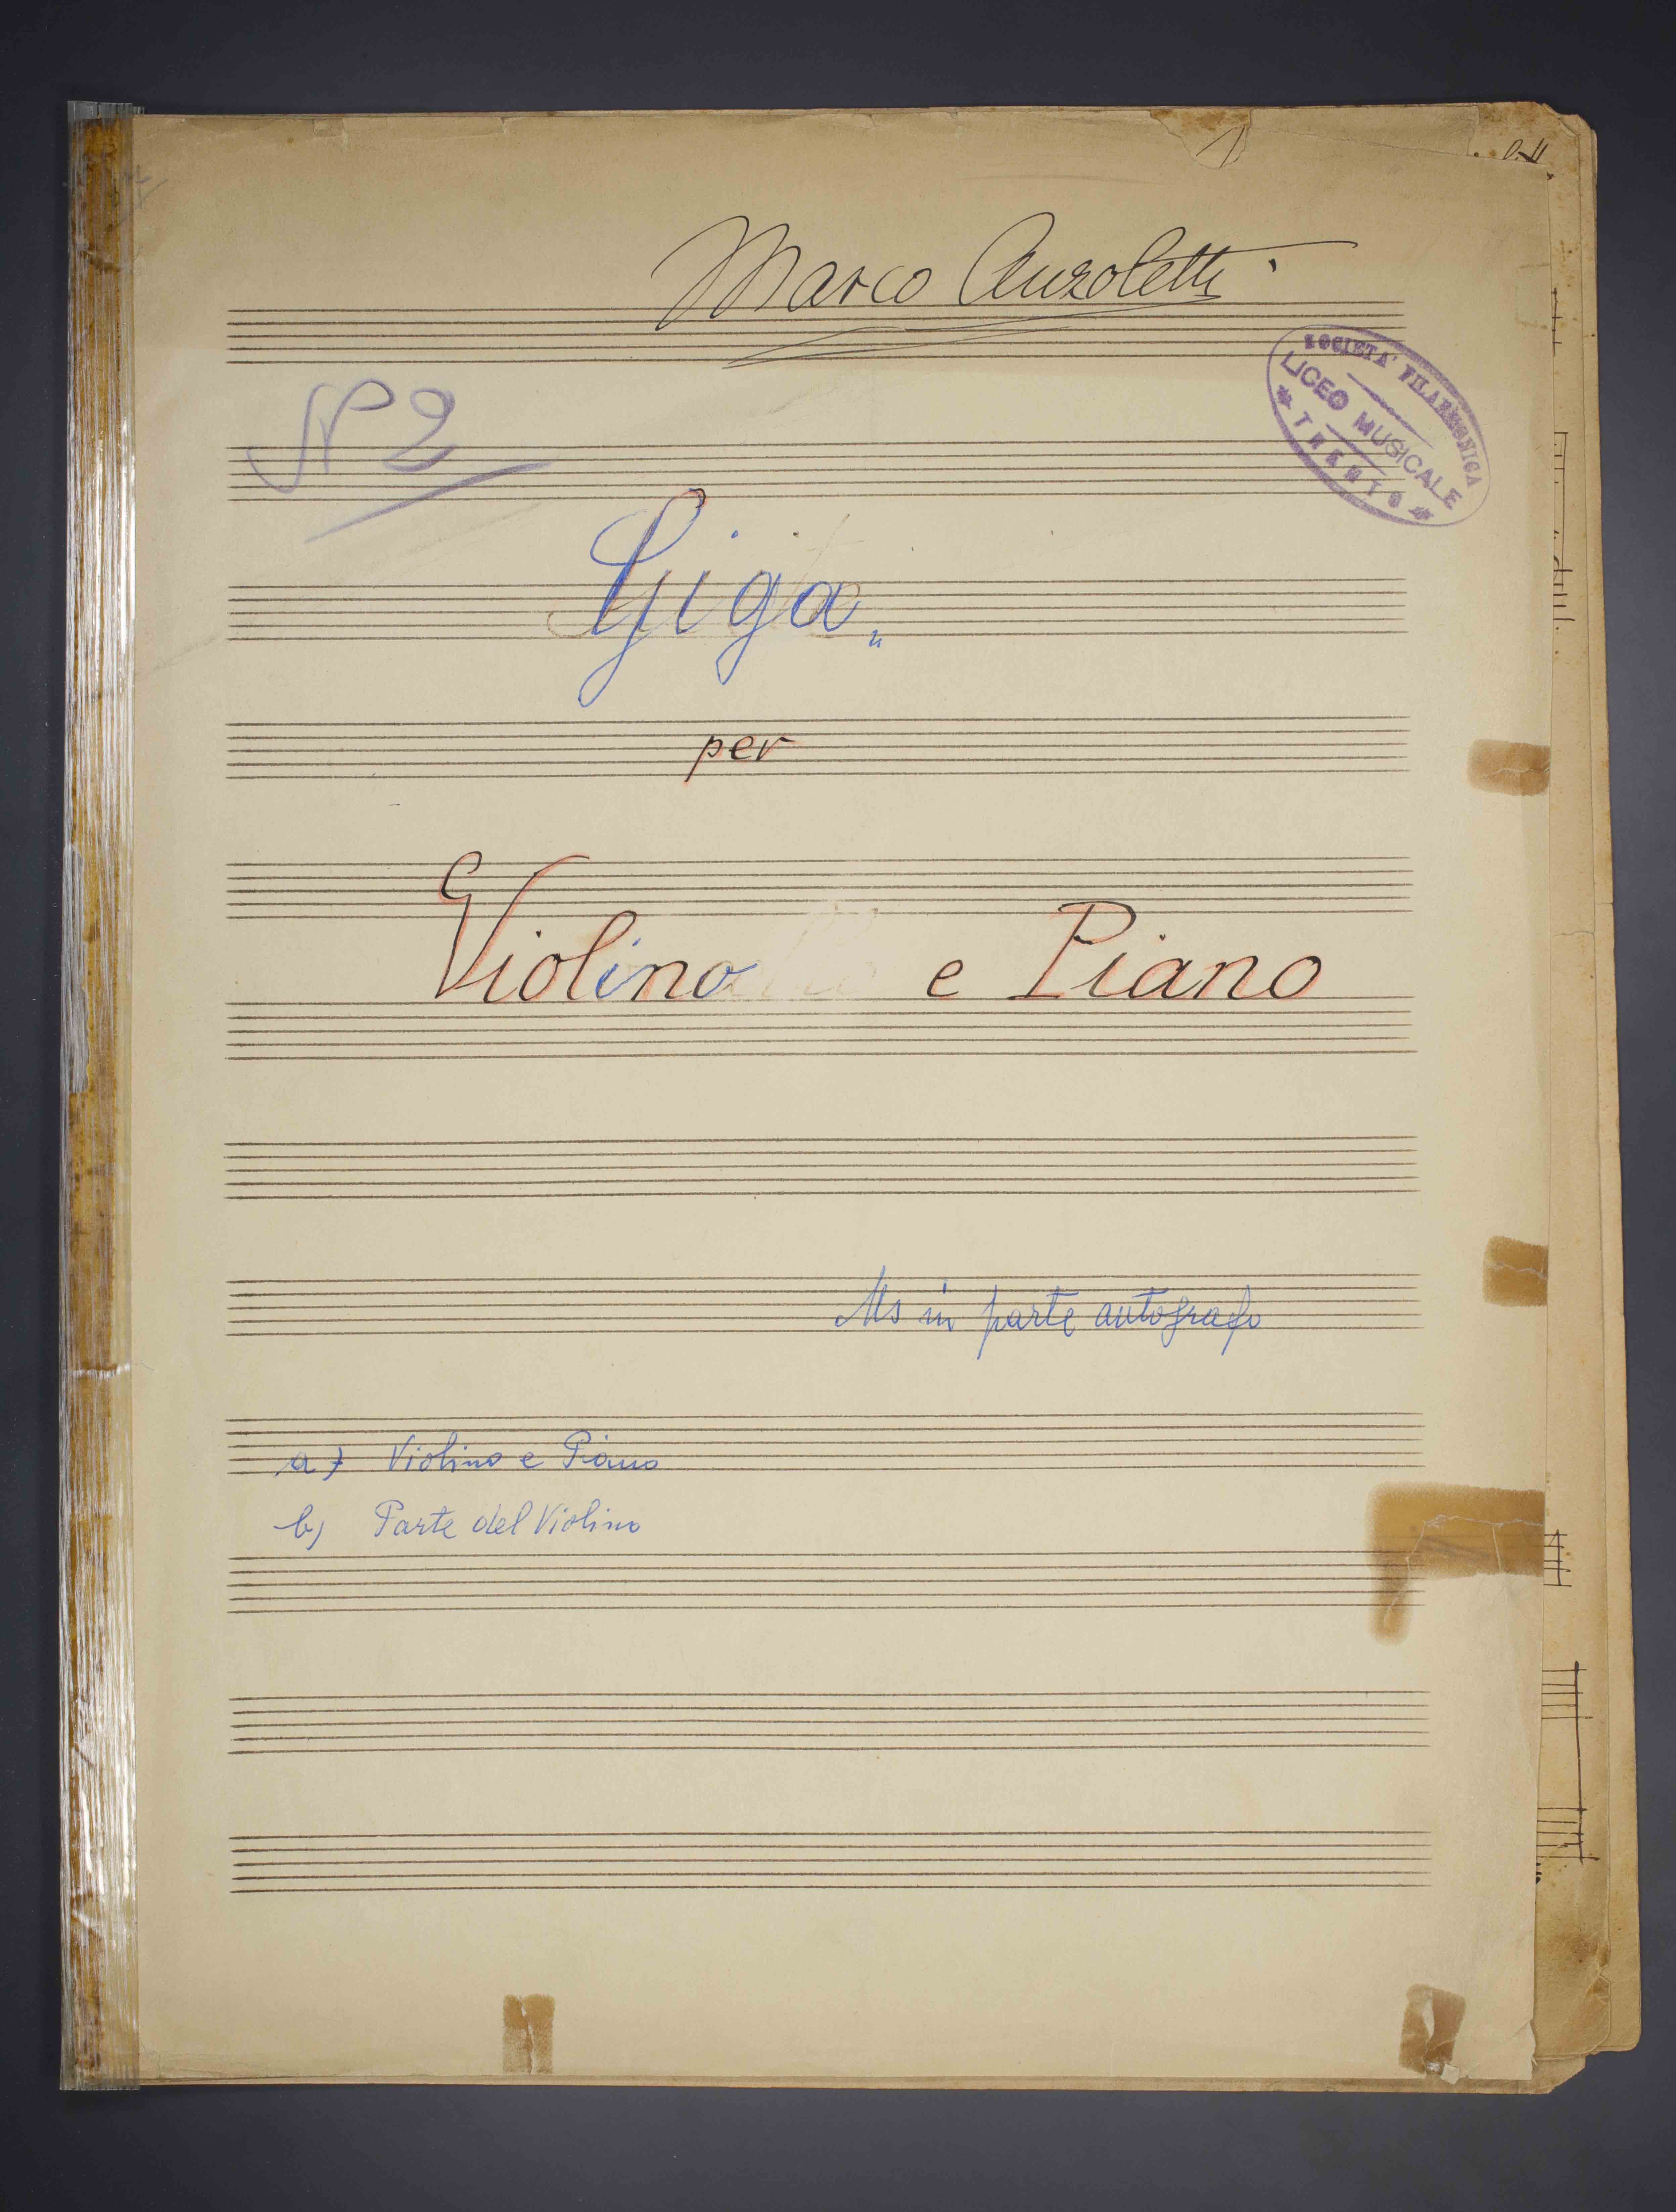 Marco Anzoletti
SOCIETA' FILARMONICA
LICEO MUSICALE
TRENTO
N° 2
Giga
per
Violino e Piano
Ms in parte autografo
a) Violino e Piano
b) Parte del Violino